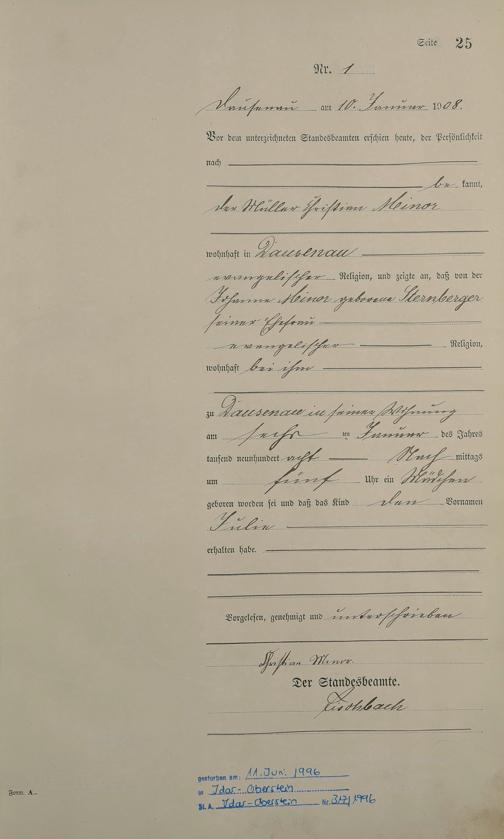 Seite 25
Nr. 1
Dausenau am 10. Januar 1908.
Vor dem unterzeichneten Standesbeamten erschien heute, der Persönlichkeit
nach
be kannt,
der Müller Christian Minor
wohnhaft in Dausenau
evangelischer Religion, und zeigte an, daß von der
Johanne Minor geborene Sternberger
seiner Ehefrau
evangelischer Religion,
wohnhaft bei ihm
zu Dausenau in seiner Wohnung
am sechs ten Januar des Jahres
tausend neunhundert acht Nach mittags
um fünf Uhr ein Mädchen
geboren worden sei und daß das Kind den Vornamen
Julie
erhalten habe.
Vorgelesen, genehmigt und unterschrieben
Christian Minor.
Der Standesbeamte.
Fischbach
gestorben am: 11. Juni 1996
in Idar-Oberstein
St. A. Idar-Oberstein Nr. 317/1996
Form. A.